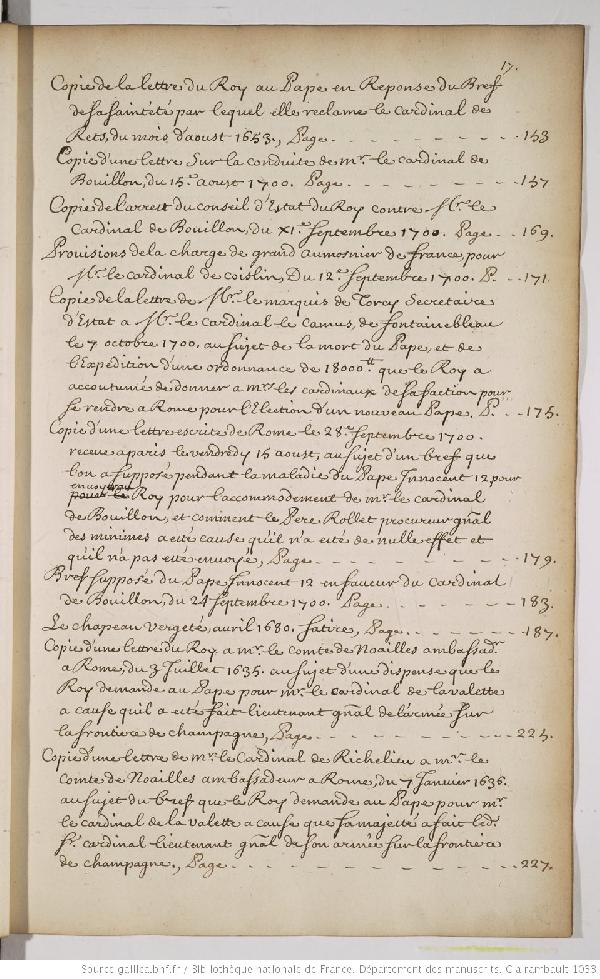 17.
Copie de la lettre du Roy au Pape en Reponse du Bref
de sa sainteté par lequel elle reclame le cardinal de
Rets, du mois d'aoust 1653., Page. - - - - - - - 153
Copie d'une lettre sur la conduite de mr. le cardinal de
Bouillon, du 15e. aoust 1700. Page. - - - - - - - 157
Copie de l'arrest du conseil d'Estat du Roy contre Mr. le
Cardinal de Bouillon, du XIe. Septembre 1700. Page - - 169.
Provisions de la charge de grand aumosnier de france, pour
Mr. le cardinal de coislin, Du 12e. Septembre 1700. P. - - 171
Copie de la lettre de Mr. le marquis de Torcy Secretaire
d'Estat a Mr. le cardinal le Camus, de fontainebleau
le 7 octobre 1700. au sujet de la mort du Pape, et de
l'Expedition d'une ordonnance de 18000tt que le Roy a
accoutumé de donner a mrs. les cardinaux de sa faction pour
se rendre a Rome pour l'Election d'un nouveau Pape. P. - - 175.
Copie d'une lettre escrite de Rome le 28e. Septembre 1700.
receue a paris le vendredy 15 aoust, au sujet d'un bref que
l'on a supposé pendant la maladie du Pape Innocent 12 pour
envoyer au
Roy pour l'accommodement de mr. le cardinal
de Bouillon, et comment le Pere Rollet procureur gnãl
des minimes a esté cause qu'il n'a esté de nulle effet et
qu'il n'a pas esté envoyé, Page - - - - - - - 179.
Bref supposé du Pape Innocent 12 en faveur du cardinal
de Bouillon, du 24 Septembre 1700. Page. - - - - - - 183.
Le chapeau vergeté, avril 1680. satires, Page. - - - - - 187.
Copie d'une lettre du Roy a mr. le comte de Noailles ambassadr.
a Rome, du 3 Juillet 1635. au sujet d'une dispense que le
Roy demande au Pape pour mr. le cardinal de la valette
a cause qu'il a esté fait lieutenant gnãl de l'armée sur
la frontiere de champagne, Page - - - - - - - 225.
Copie d'une lettre de mr. le Cardinal de Richelieu a mr. le
comte de Noailles ambassadeur a Rome, du 7 Janvier 1636.
au sujet du bref que le Roy demande au Pape pour mr.
le cardinal de la valette a cause que sa majesté a fait led.
Sr. cardinal lieutenant gnãl de son armée sur la frontiere
de champagne., Page - - - - - - - 227.
Source gallica.bnf.fr / Bibliothèque nationale de France. Département des manuscrits. Clairambault 1033